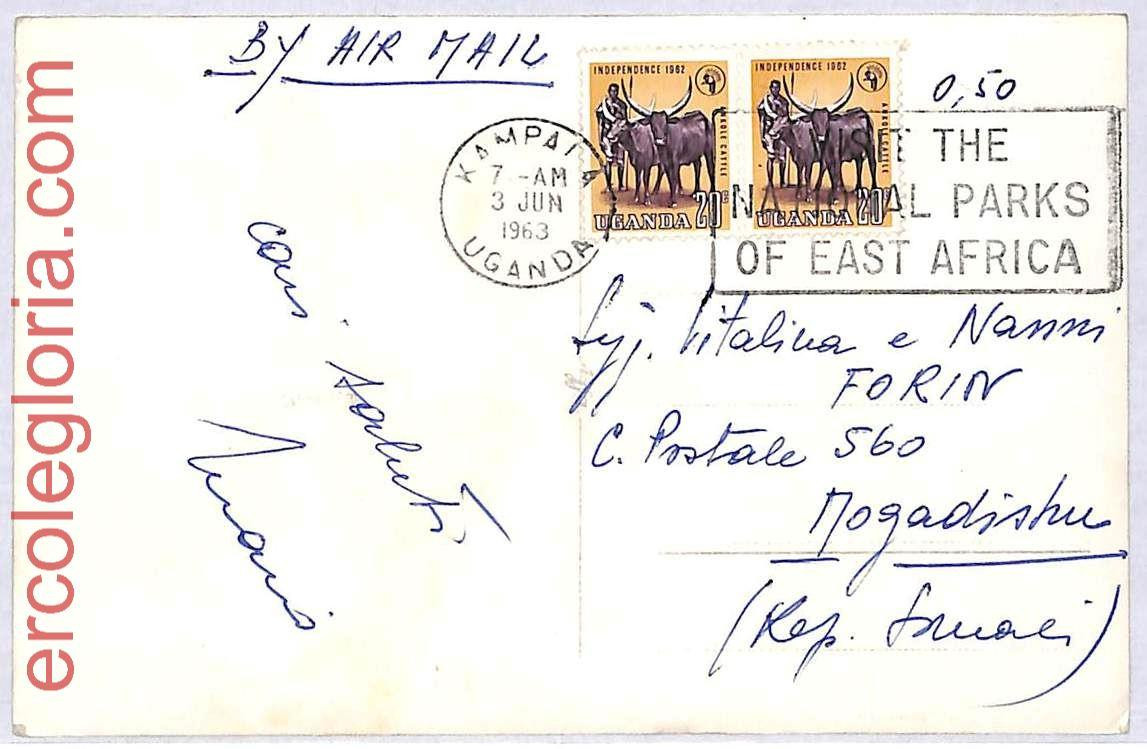 ercolegloria.com
BY AIR MAIL
INDEPENDENCE 1962
ANKOLE CATTLE
UGANDA 20c
INDEPENDENCE 1962
ANKOLE CATTLE
UGANDA 20c
0,50
KAMPALA
7 -AM
3 JUN
1963
UGANDA
VISIT THE
NATIONAL PARKS
OF EAST AFRICA
cari saluti
Mario
Sigg. Vitalina e Nanni
FORIN
C. Postale 560
Mogadishu
(Rep. Somali)